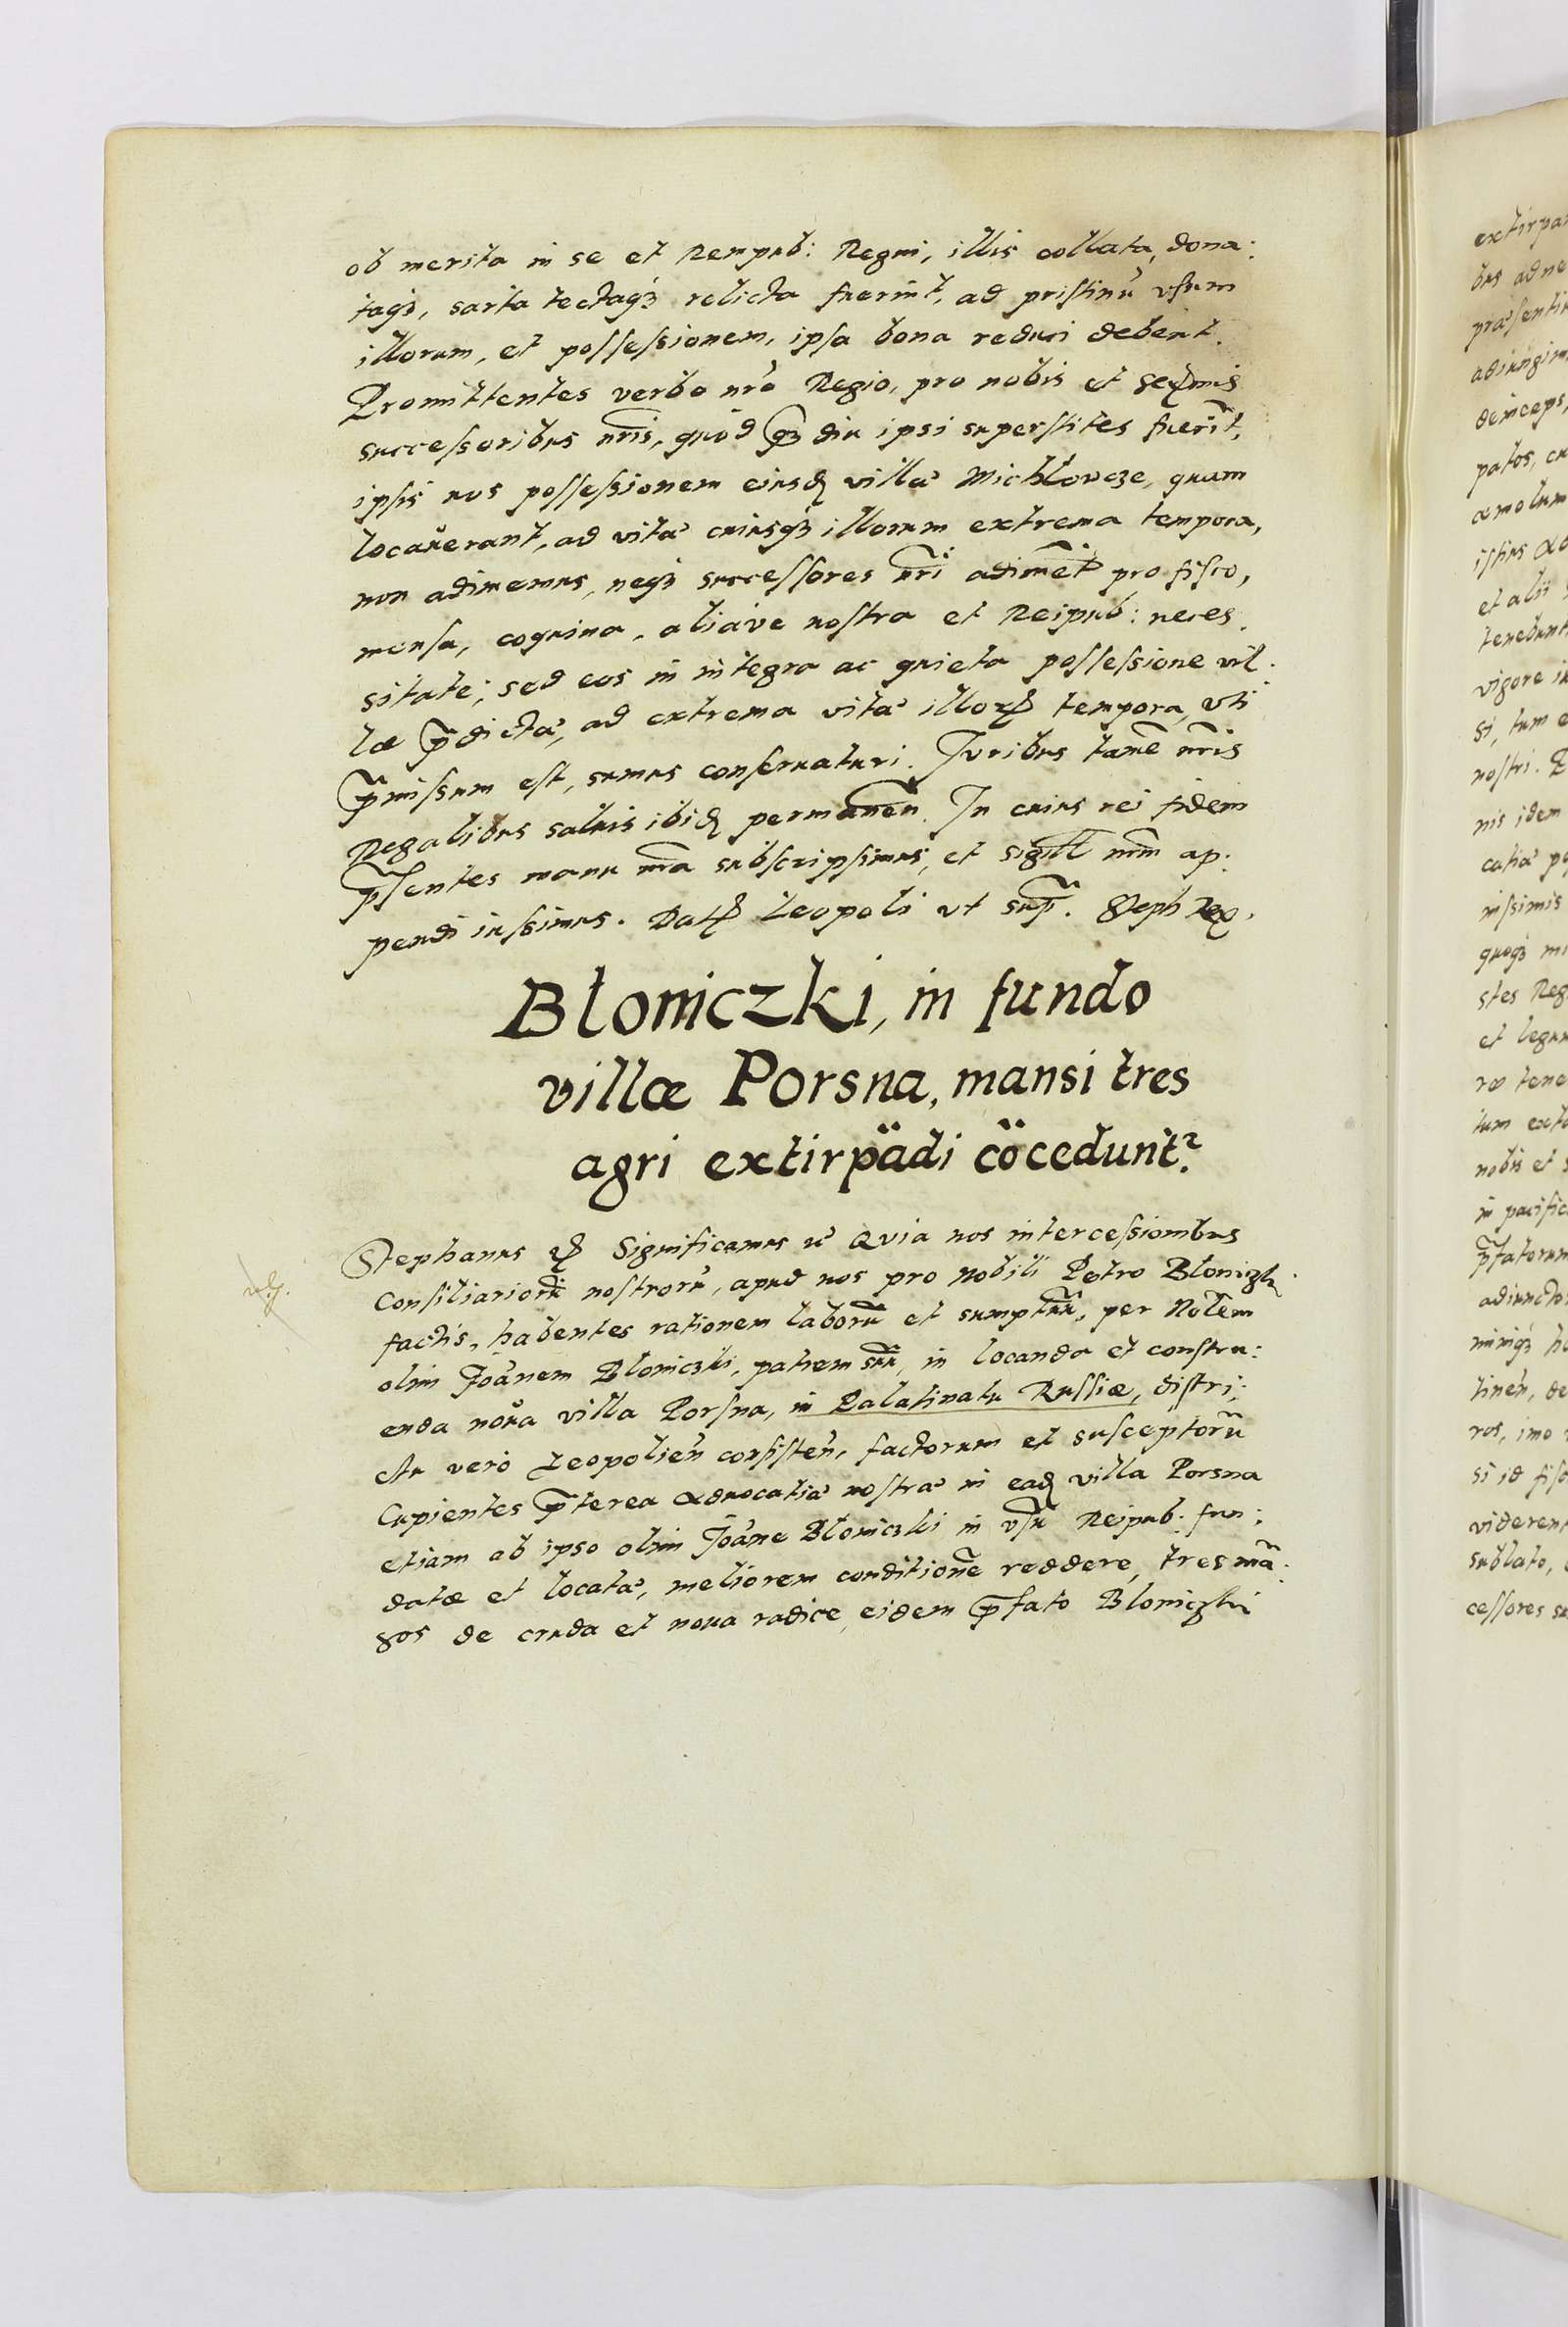 ob merita in se et Rempub: Regni, illis collata, dona:
taq3, sarta tectaq3 relicta fuerint, ad pristinũ vsum
illorum, et possessionem, ipsa bona reduci debent.
Promittentes verbo nr̃o Regio, pro nobis et serẽmis
successoribus nr̃is, quòd q̃3 diu ipsi superstites fuerĩt,
ipsis nos possessionem eiusd villæ Michlovcze, quam
locauerant, ad vitæ cuiusq3 illorum extrema tempora,
non adimemus, neq3 successores nr̃i adimẽt pro fisco,
mensa, coquina, aliáve nostra et Reipub: neces.
sitate; sed eos in integra ac quieta possessione vil.
læ p̃dictæ, ad extrema vitæ illoꝝ tempora, vti
p̃missum est, sumus conseruaturi. Juribus tamẽ nr̃is
Regalibus saluis ibid permaneñ. In cuius rei fidem
p̃sentes manu nr̃a subscripsimus, et sigill nr̃m ap:
pendi iussimus. Datꝝ Leopoli vt sup̃. Steph Rex.
Błoniczki, in fundo
villæ Porsna, mansi tres
agri extirpãdi cõcedunt².
Stephanus ꝝ Significamus ꝛc Quia nos intercessionibus
Consiliariorũ nostrorũ, apud nos pro Nobili Petro Bloniczki
factis, habentes rationem laborũ et sumptuũ, per No℔lem
olim Joãnem Bloniczki, patrem suũ, in locanda et constru:
enda noua villa Porsna, in Palatinatu Russiæ, distri:
ctu verò Leopolieñ consisteñ, factorum et susceptorũ
Cupientes p̃terea aduocatiæ nostræ in ead villa Porsna
etiam ab ipso olim Joãne Bloniczki in vsũ Reipub: fun:
datæ et locatæ, meliorem conditionẽ reddere, tres mã:
sos de cruda et noua radice, eidem p̃fato Bloniczki